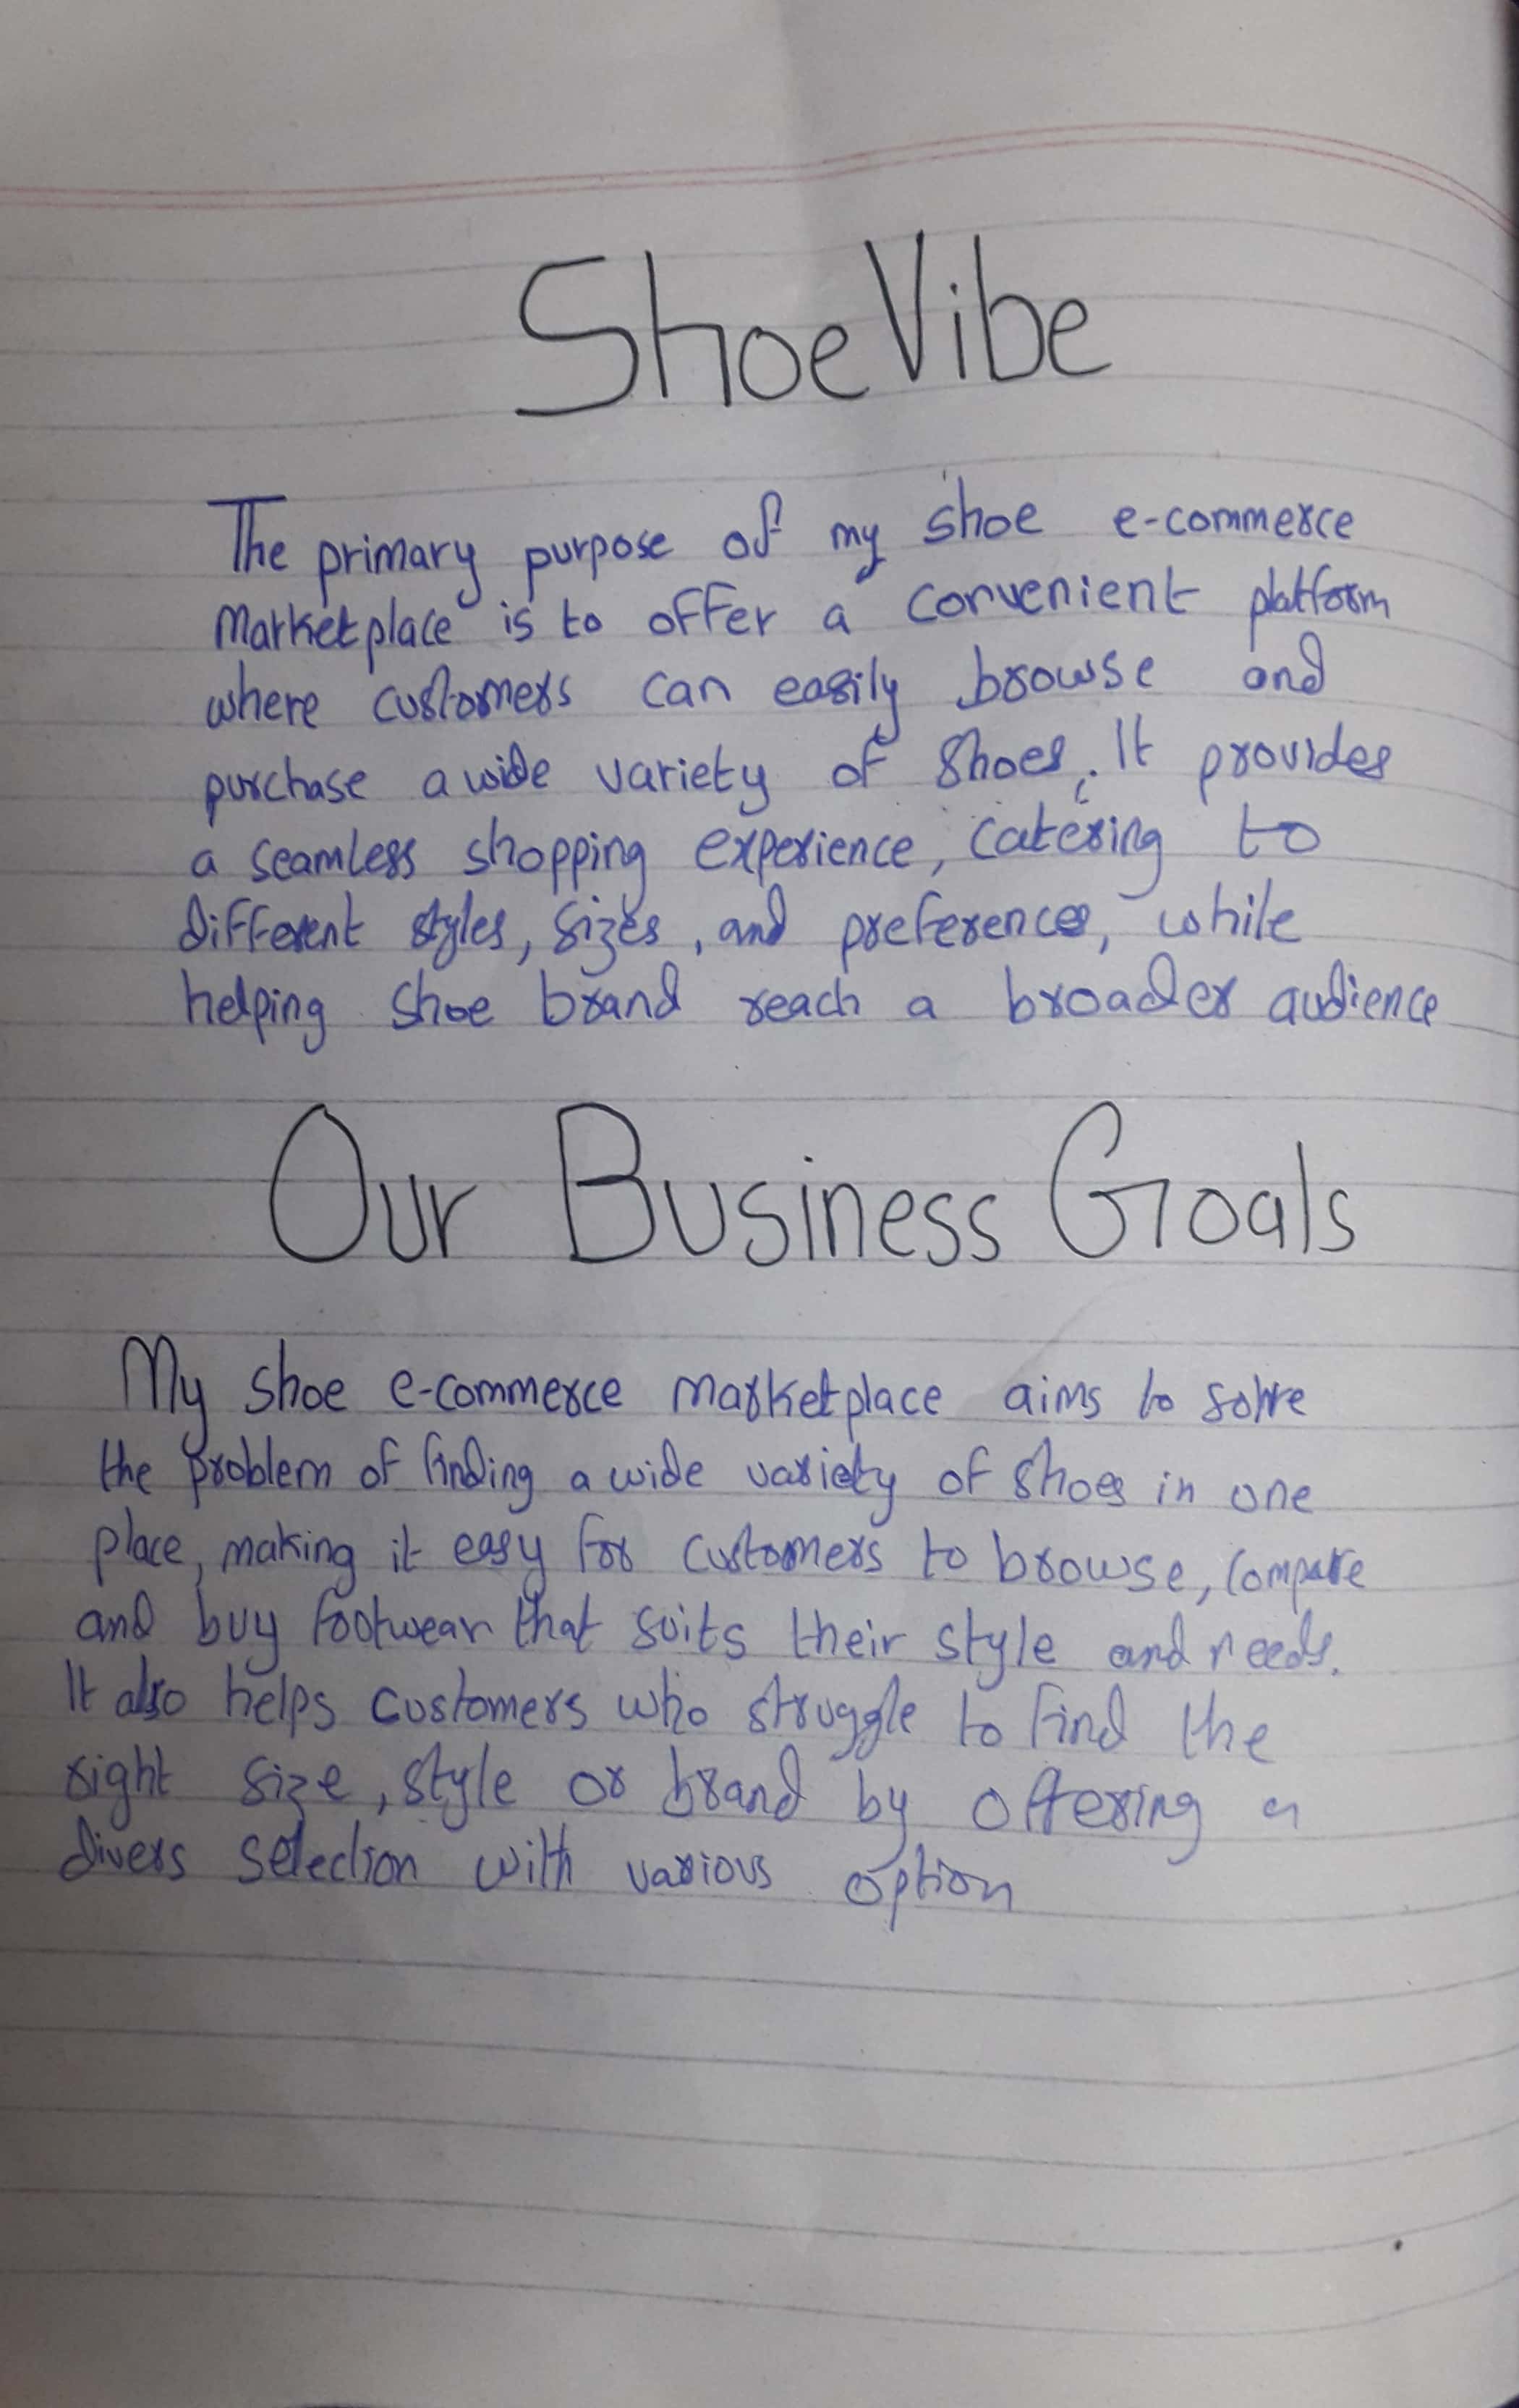 ShoeVibe
The primary purpose of my shoe e-commerce
Marketplace is to offer a convenient platform
where customers can easily browse and
purchase a wide variety of shoes. It provides
a seamless shopping experience, catering to
different styles, sizes, and preferences, while
helping shoe brand reach a broader audience
Our Business Goals
My shoe e-commerce marketplace aims to solve
the problem of finding a wide variety of shoes in one
place, making it easy for customers to browse, compare
and buy footwear that suits their style and needs.
It also helps customers who struggle to find the
right size, style or brand by offering a
divers selection with various option